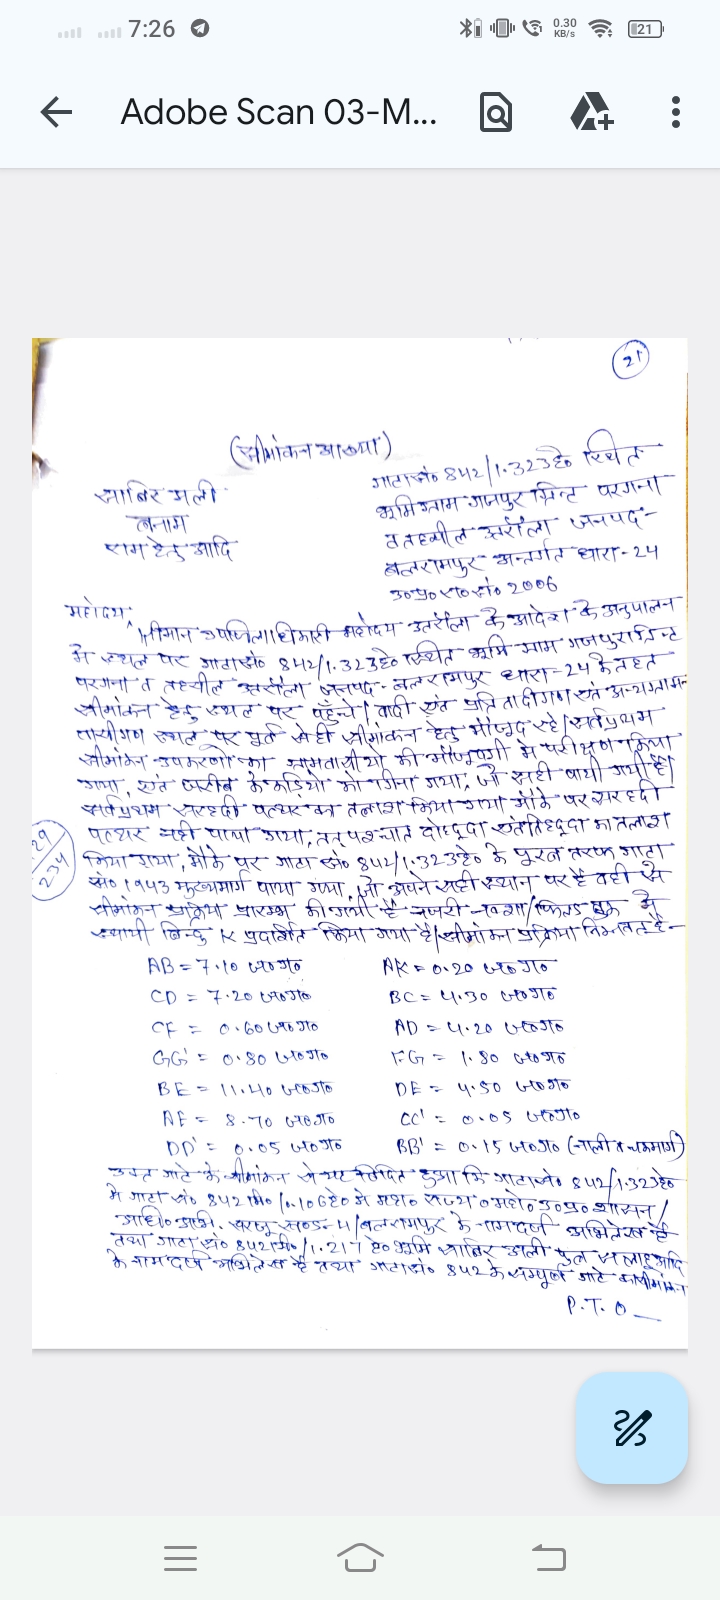 7:26
0.30 KB/s
21
Adobe Scan 03-M...
21
(सीमांकन आख्या)
साबिर अली
बनाम
राम हेतु आदि
गाटा सं० 842/1.323हे० स्थित
भूमि ग्राम गजपुर ग्रिन्ट परगना
व तहसील उतरौला जनपद-
बलरामपुर अन्तर्गत धारा-24
उ०प्र०रा०सं० 2006
महोदय,
श्रीमान उपजिलाधिकारी महोदय उतरौला के आदेश के अनुपालन
में स्थल पर गाटा सं० 842/1.323हे० स्थित भूमि ग्राम गजपुर ग्रिन्ट
परगना व तहसील उतरौला जनपद-बलरामपुर धारा-24 के तहत
सीमांकन हेतु स्थल पर पहुँचे। वादी एवं प्रतिवादीगण एवं अन्य ग्राम
वासीगण स्थल पर पूर्व से ही सीमांकन हेतु मौजूद रहे। सर्वप्रथम
सीमांकन उपकरणों का ग्रामवासीयो की मौजूदगी में परीक्षण किया
गया, एवं जरीब के कड़ियो को गिना गया, जो सही पायी गयी है।
सर्वप्रथम सरहदी पत्थर का तलाश किया गया मौके पर सरहदी
पत्थर नही पाया गया, तत्पश्चात दोहद्दा एवं तिहद्दा का तलाश
29/234
किया गया, मौके पर गाटा सं० 842/1.323हे० के पूरब तरफ गाटा
सं० 1943 मुख्यमार्ग पाया गया, जो अपने सही स्थान पर है वही से
सीमांकन प्रक्रिया प्रारम्भ की गयी है नजरी नक्शा/फिल्ड बुक में
स्थायी बिन्दु K प्रदर्शित किया गया है। सीमांकन प्रक्रिया निम्नवत है-
AB = 7.10 ज०ग० AK = 0.20 ज०ग०
CD = 7.20 ज०ग० BC = 4.30 ज०ग०
CF = 0.60 ज०ग० AD = 4.20 ज०ग०
GG' = 0.80 ज०ग० FG = 1.80 ज०ग०
BE = 11.40 ज०ग० DE = 4.50 ज०ग०
AF = 8.70 ज०ग० CC' = 0.05 ज०ग०
DD' = 0.05 ज०ग० BB' = 0.15 ज०ग० (नाली व चकमार्ग)
उक्त गाटे के सीमांकन से यह विदित हुआ कि गाटा सं० 842/1.323हे०
में गाटा सं० 842मि०/0.106हे० में महा० राज्य० महो० उ०प्र० शासन/
सरजू बलरामपुर के नाम दर्ज अभिलेख है
तथा गाटा सं० 842मि०/1.217 हे० भूमि साबिर अली पुत्र आदि
के नाम दर्ज अभिलेख है तथा गाटा सं० 842 के सम्पूर्ण गाटे का सीमांकन
P.T.O